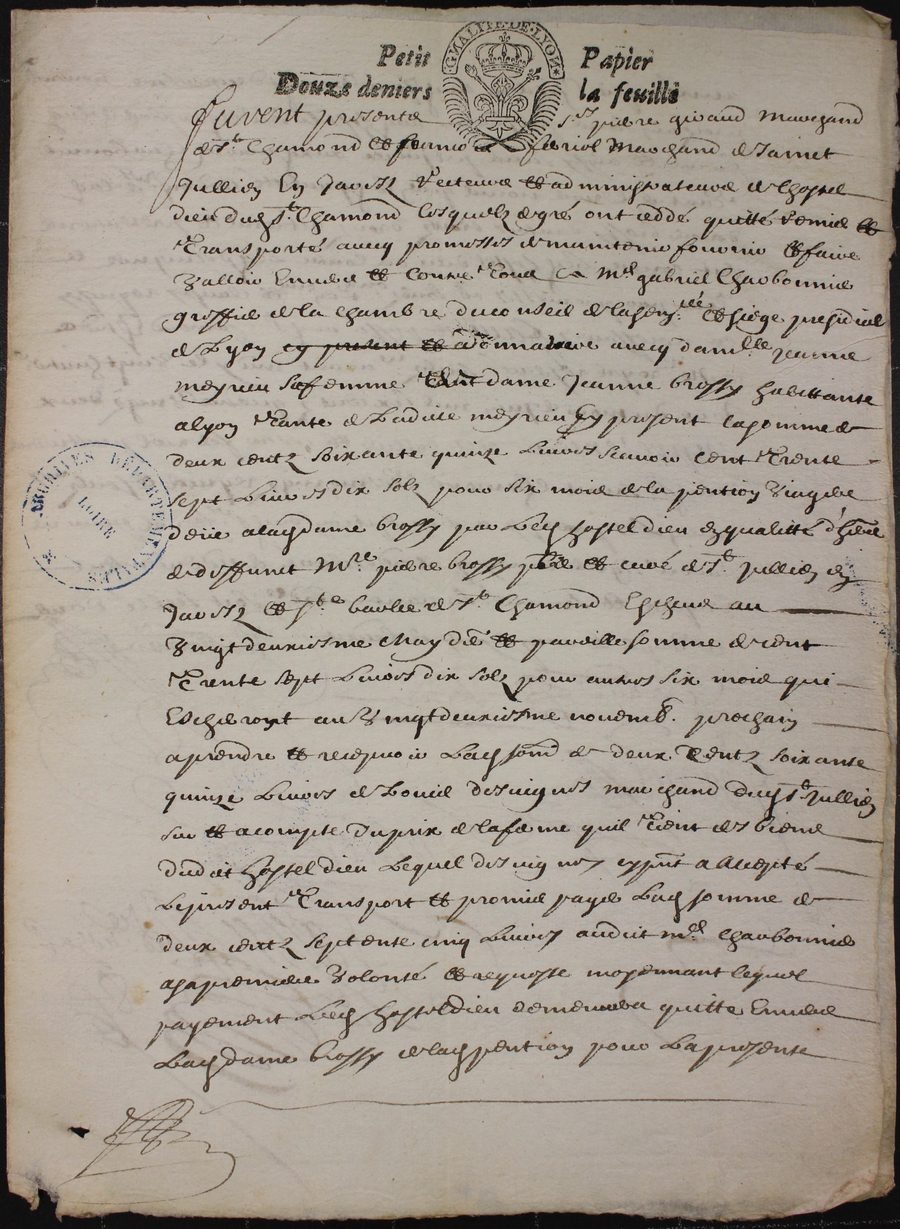 GNALITE·DE·LYON
Petit Papier
Douze deniers la feuille
Furent presents srs pierre giraud Marchand
de St Chamond et ferriol Marchand de sainct
Jullien En Jarretz recteurs et administrateurs de lhostel
dieu dud St Chamond lesquelz de gré ont ceddé quitté remis et
Transporté avecq promesses de maintenir fournir et faire
Valloir Envers et Contre Tous a Mre gabriel Charbonnier
greffier de la Chambre du conseil de la sen.cée et siege presidial
de Lyon ey present et avecq damlle jeanne
meyrieu sa femme dame Jeanne brossy habittante
a lyon Tante de Laditte meyrieu Ey present la somme de
deux centz soixante quinze Livres scavoir Cent Trente
sept Livres dix solz pour six mois de la pention Viagere
deue a lad dame brossy par Led hostel dieu en qualitté d'heure
de deffunct Mre pierre brossy pbre et curé de St Jullien en
Jarretz et barbe de St Chamond Escheus au
Vingt deuxiesme May der et pareille somme de cent
Trente sept Livres dix solz pour autres six mois qui
Escheront au Vingt deuxiesme novemb. prochain
a prendre et recepvoir Lad somme de deux Centz soixante
quinze Livres de Louis desvignes marchand dud St Jullien
sur et a compte du prix de la ferme quil Tient des biens
dudit hostel dieu Lequel desvignes ey pnt a accepté
Le present Transport et promis payer Lad somme de
deux centz septente cinq Livres audit mre Charbonnier
a sa premiere Volonté et requeste moyennant lequel
payement Led hostel dieu demeurera quitte Envers
Lad dame brossy de lad pention pour La presente
ARCHIVES DÉPARTEMENTALES
LOIRE